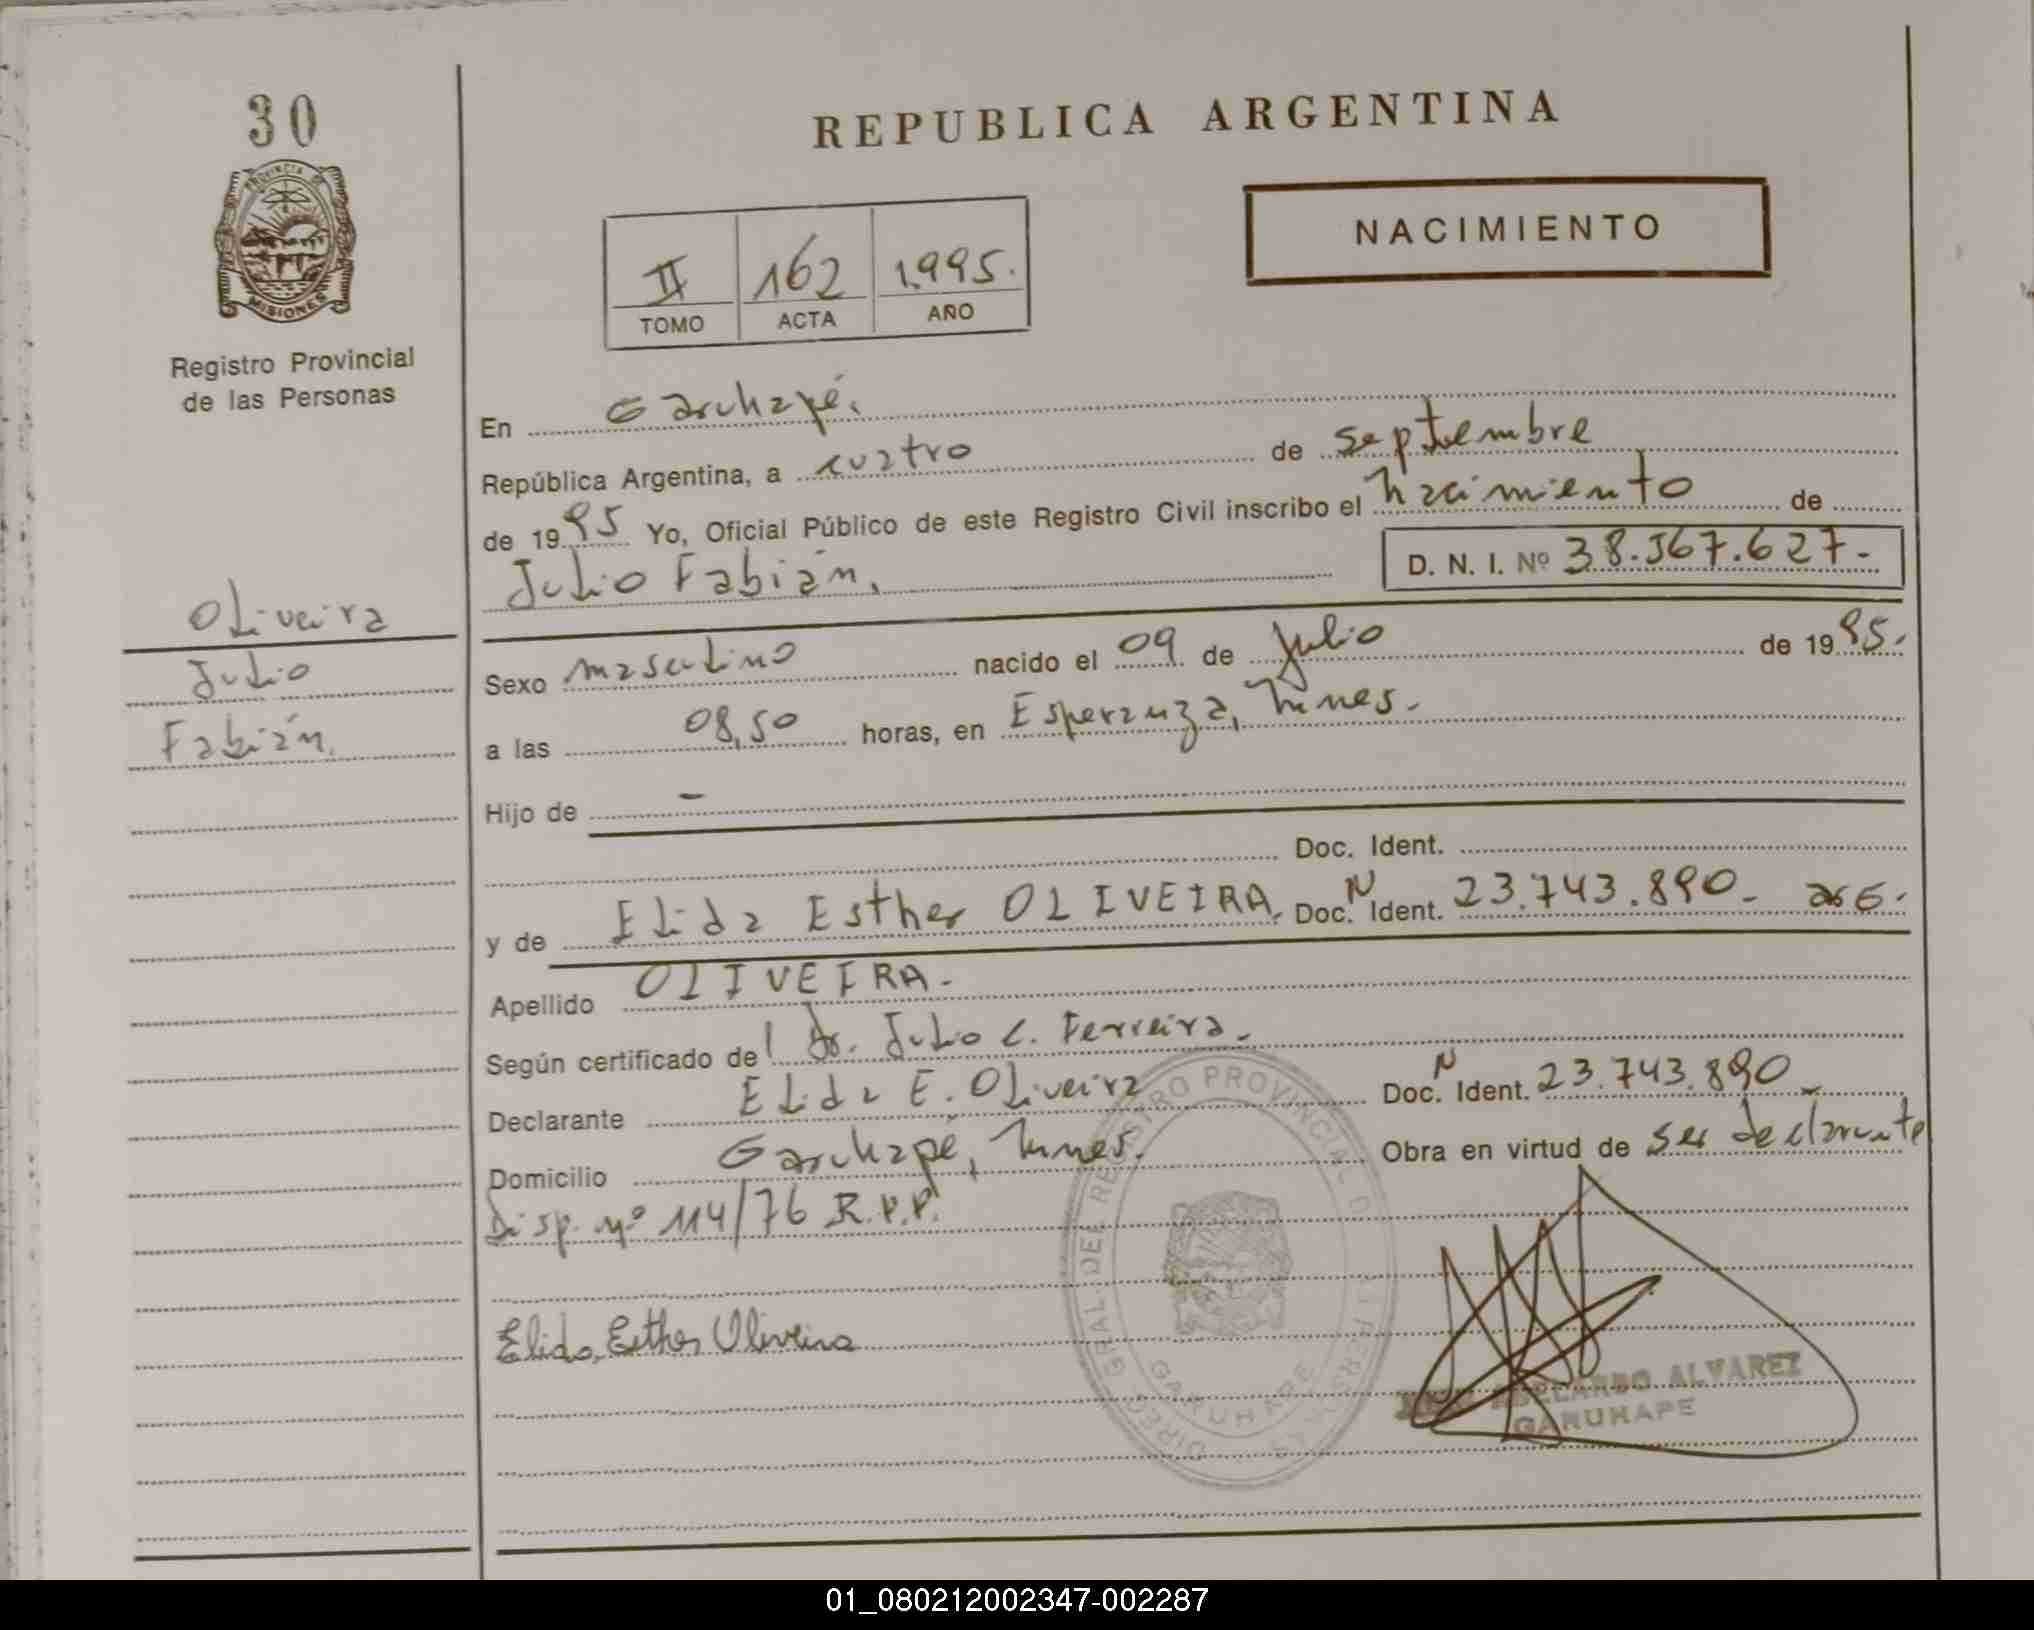 30
PROVINCIA DE
MISIONES
Registro Provincial
de las Personas
Oliveira
Julio
Fabián.
REPUBLICA ARGENTINA
NACIMIENTO
II 162 1.995.
TOMO ACTA AÑO
En Garuhapé.
República Argentina, a cuatro de septiembre
de 1995 Yo, Oficial Público de este Registro Civil inscribo el nacimiento de
Julio Fabián. D. N. I. Nº 38.567.627.-
Sexo masculino nacido el 09 de Julio de 1995.
a las 08,50 horas, en Esperanza, Mnes.
Hijo de -
Doc. Ident.
y de Elida Esther OLIVEIRA. Doc. N Ident. 23.743.890.-
Apellido OLIVEIRA.-
Según certificado del Dr. Julio C. Ferreira.-
Declarante Elida E. Oliveira Doc. N Ident. 23.743.890.-
Domicilio Garuhapé, Mnes. Obra en virtud de ser declarante
Disp. nº 114/76 R.P.P.
Elida Esther Oliveira
DIREC. GRAL. DEL REGISTRO PROVINCIAL DE LAS PERSONAS
GARUHAPE
ABELARDO ALVAREZ
GARUHAPE
01_080212002347-002287